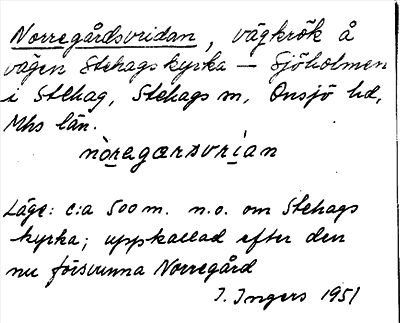 Norregårdsvridan, vägkrök å
vägen Stehags kyrka – Sjöholmen
i Stehag, Stehags sn, Onsjö hd,
Mhs län.
noregarsvrian
Läge: c:a 500 m. n.o. om Stehags
kyrka; uppkallad efter den
nu försvunna Norregård
I. Ingers 1951